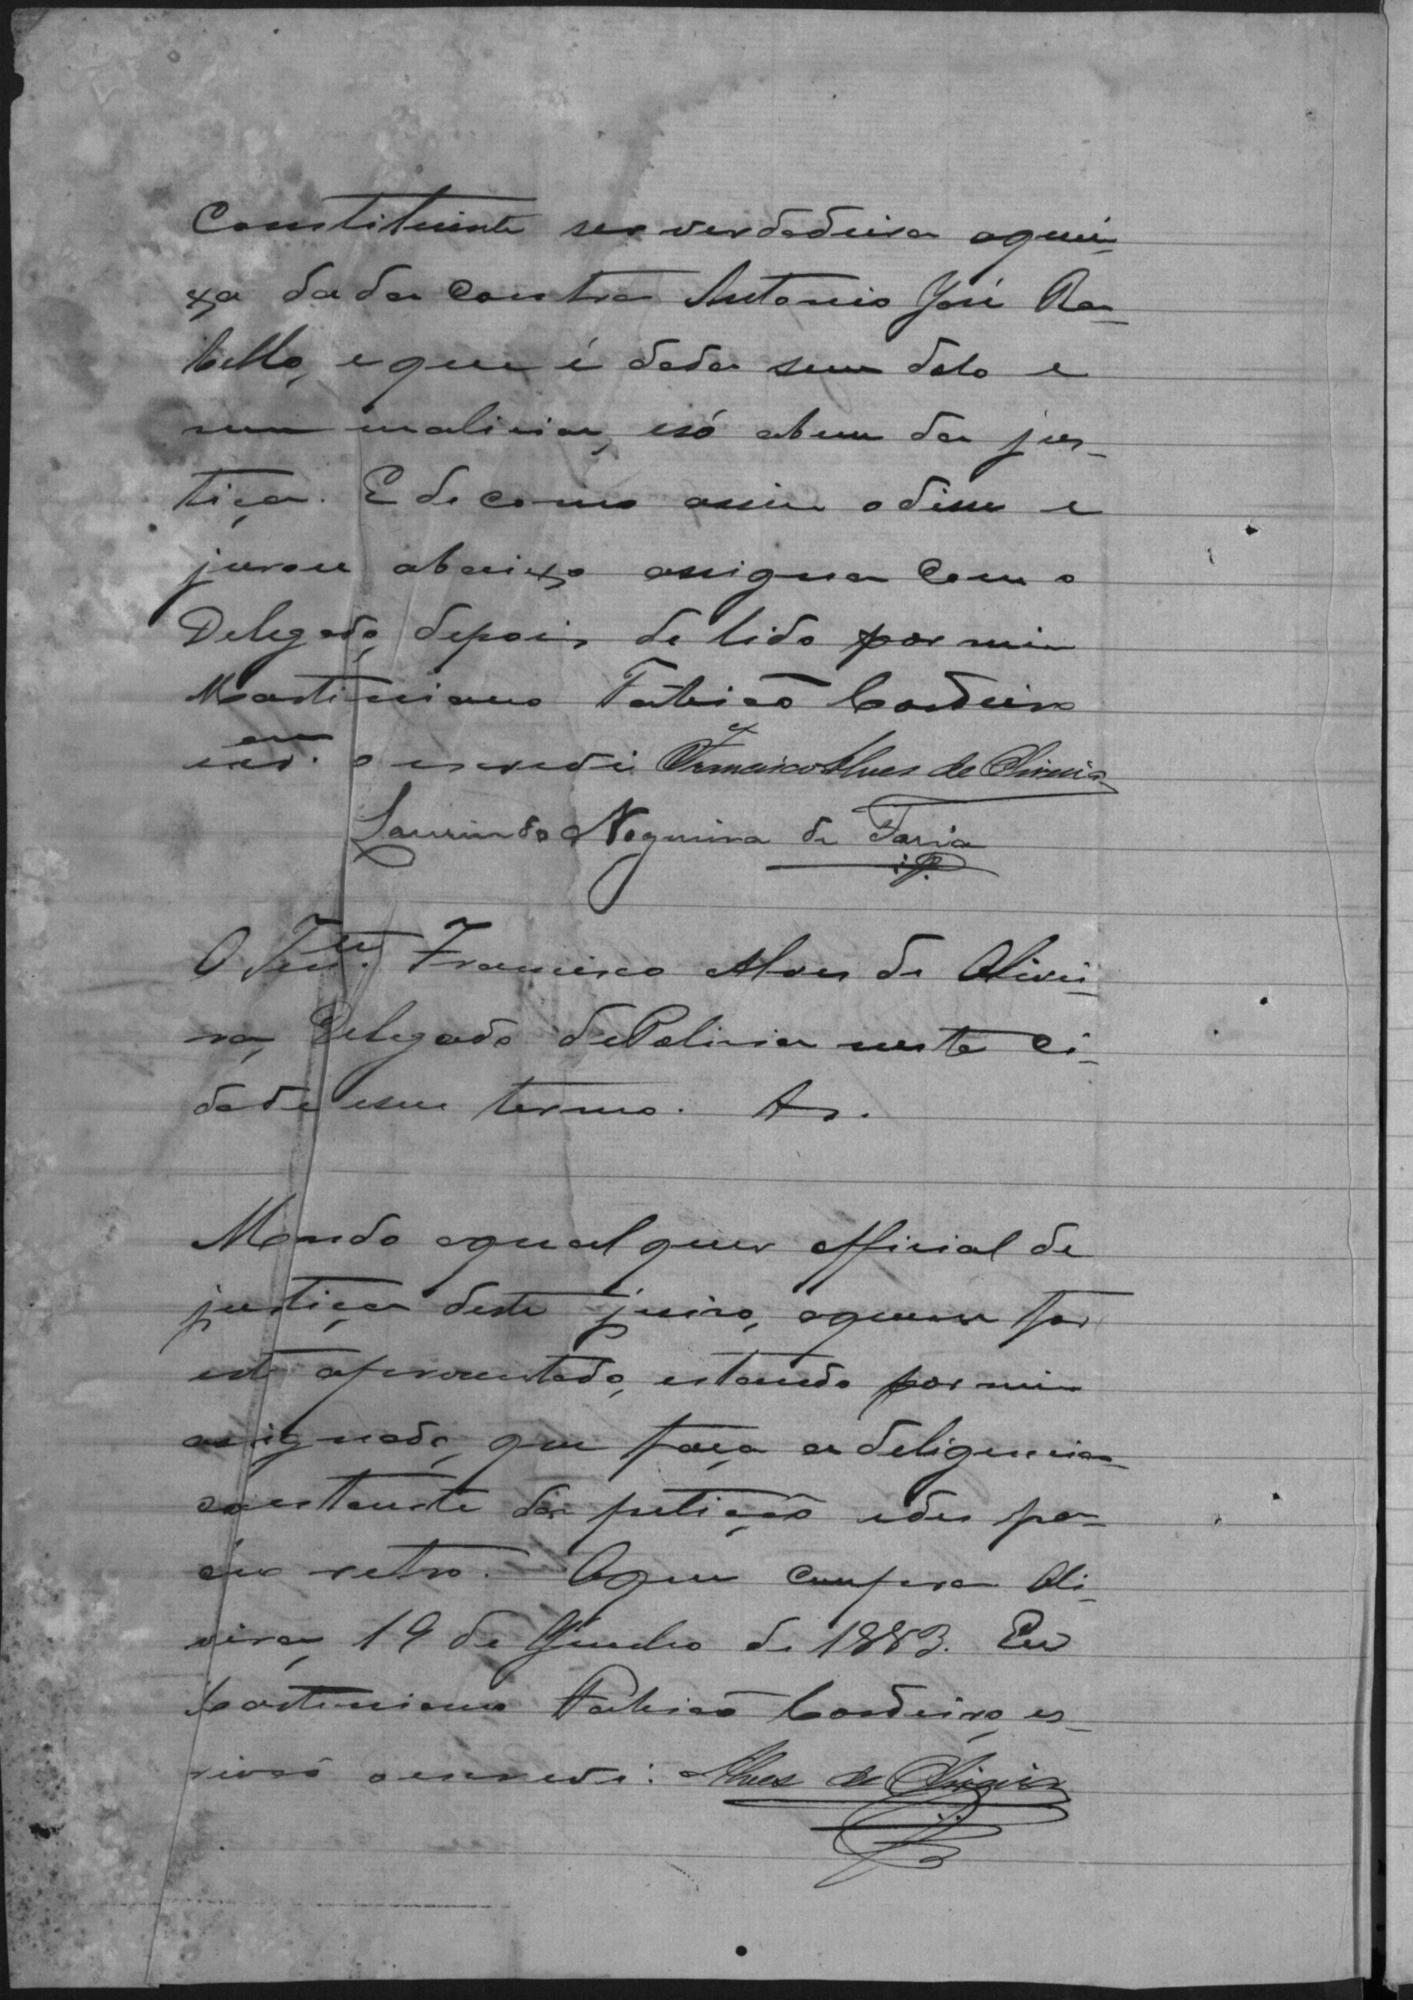 Constituinte ser verdadeira aquei-
xa dada contra Antonio José Ra-
bello, e que é dada sem dolo e
sem malicia, e só a bem da jus-
tiça. E de como assim o disse e
jurou abaixo assigna com o
Delegado, depois de lido por mim
Martiniano Patricio Cordeiro
o escrevi. Francisco Alves de Oliveira
Laurindo Nogueira de Faria
O Ten.te Francisco Alves de Olivei-
ra, Delegado de Policia nesta ci-
dade e seu termo. &
Mando a qualquer official de
justiça deste juizo, a quem for
este apresentado, estando por mim
assignado, que faça a deligencia
constante da petição e des pa-
cho retro. O que cumpra Oli-
veira, 19 de Junho de 1883. Eu
Martiniano Patricio Cordeiro, es-
crivão o escrevi: Alves de Oliveira